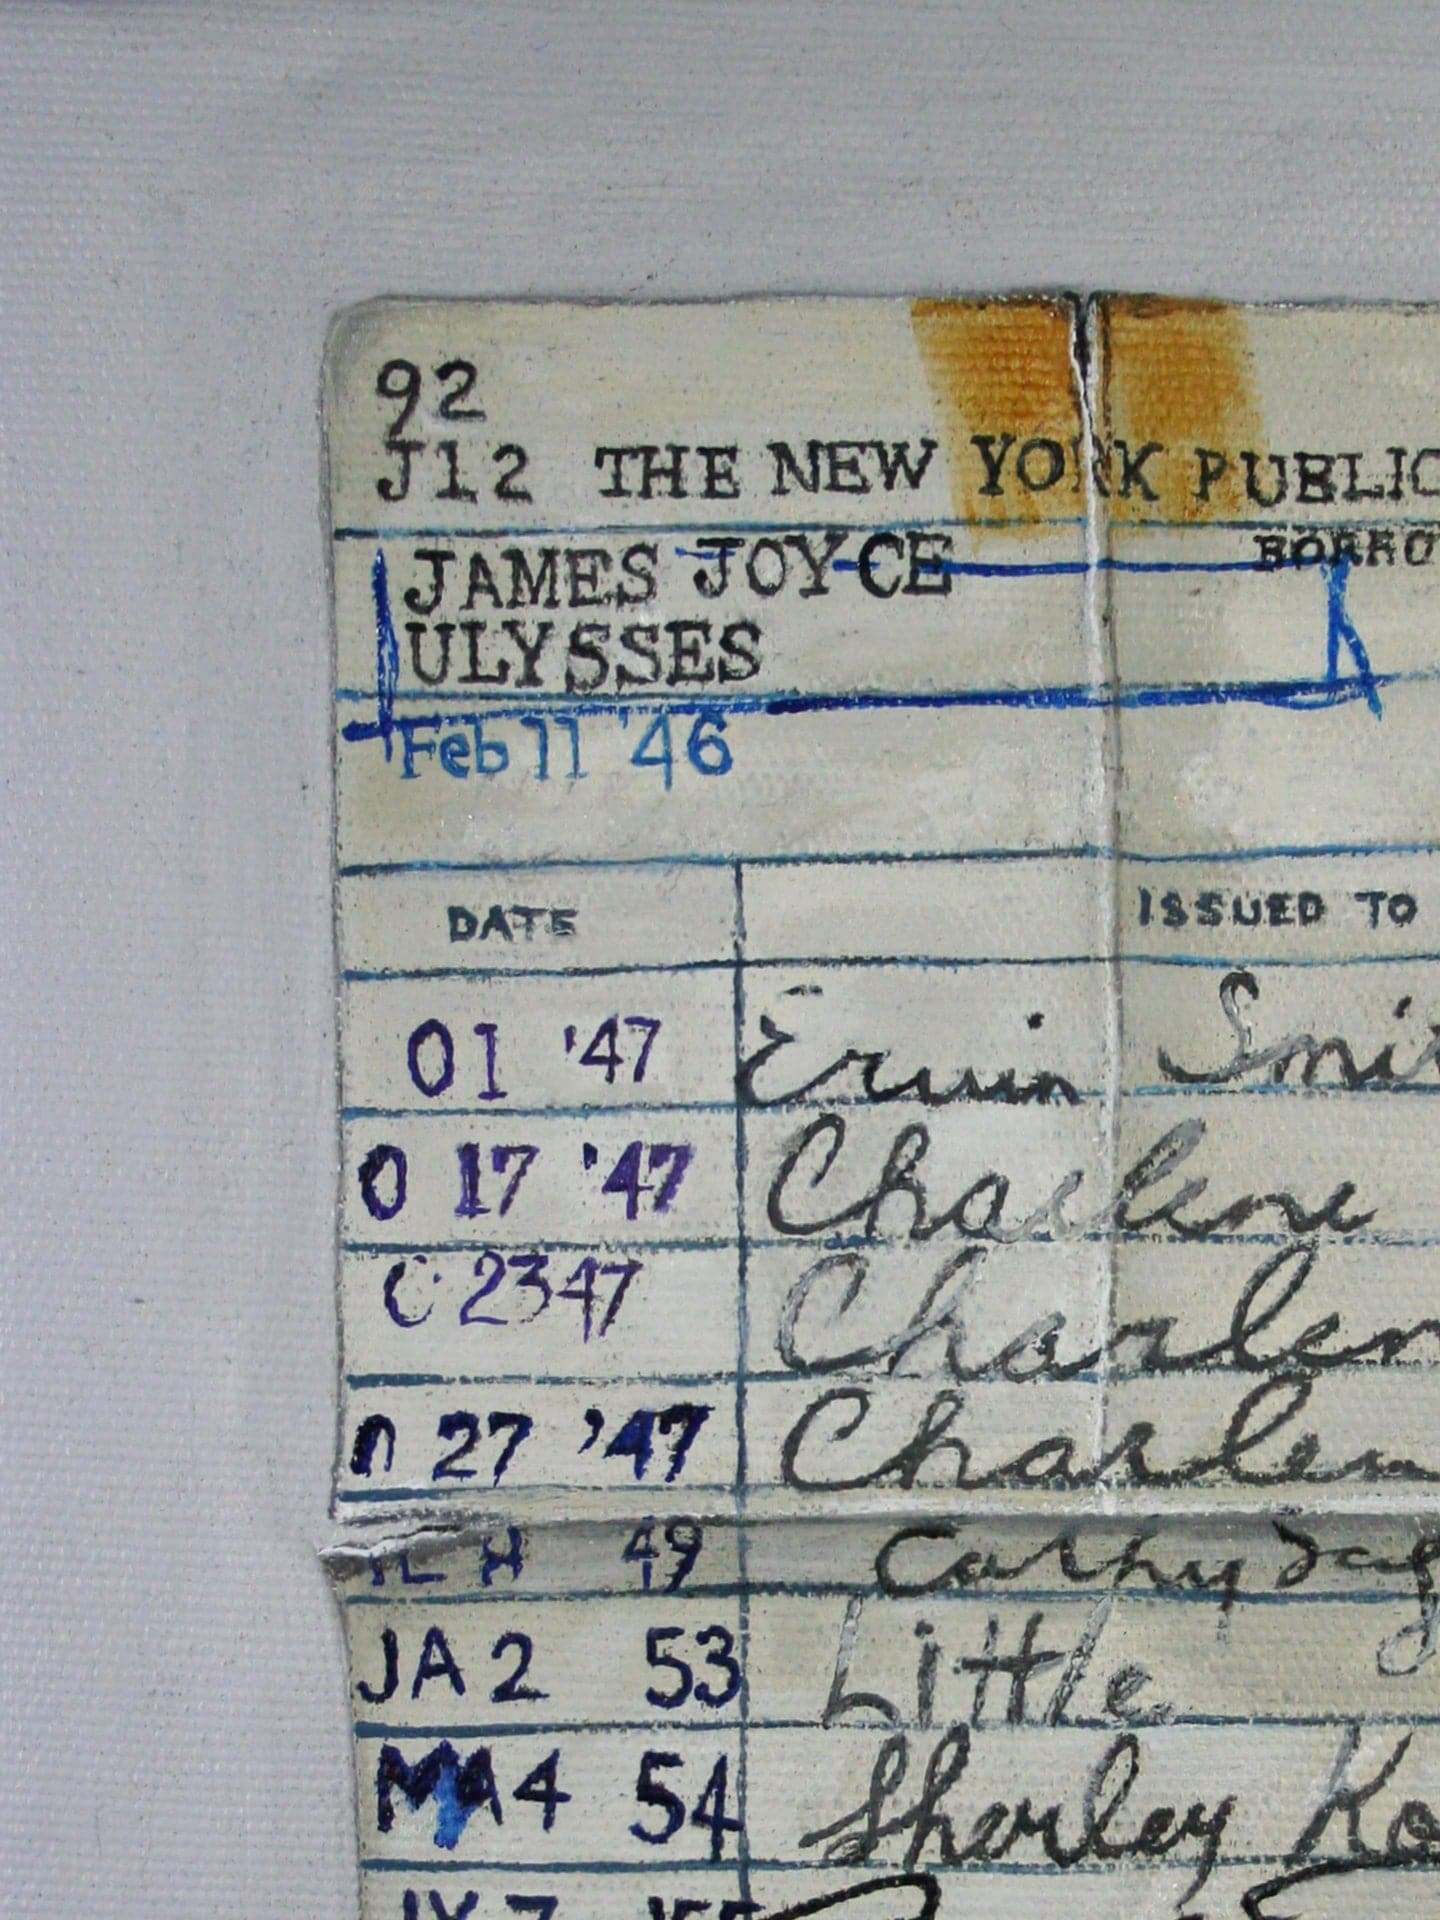 92
J12 THE NEW YORK PUBLIC
JAMES JOYCE
BORRO
ULYSSES
Feb 11 '46
DATE ISSUED TO
O1 '47 Ervin Smit
O 17 '47 Charlene
C 23 47 Charlen
27 '47 Charlen
49 Cathy
JA 2 53 Little
MA 4 54 Sherley Ko
JY 7